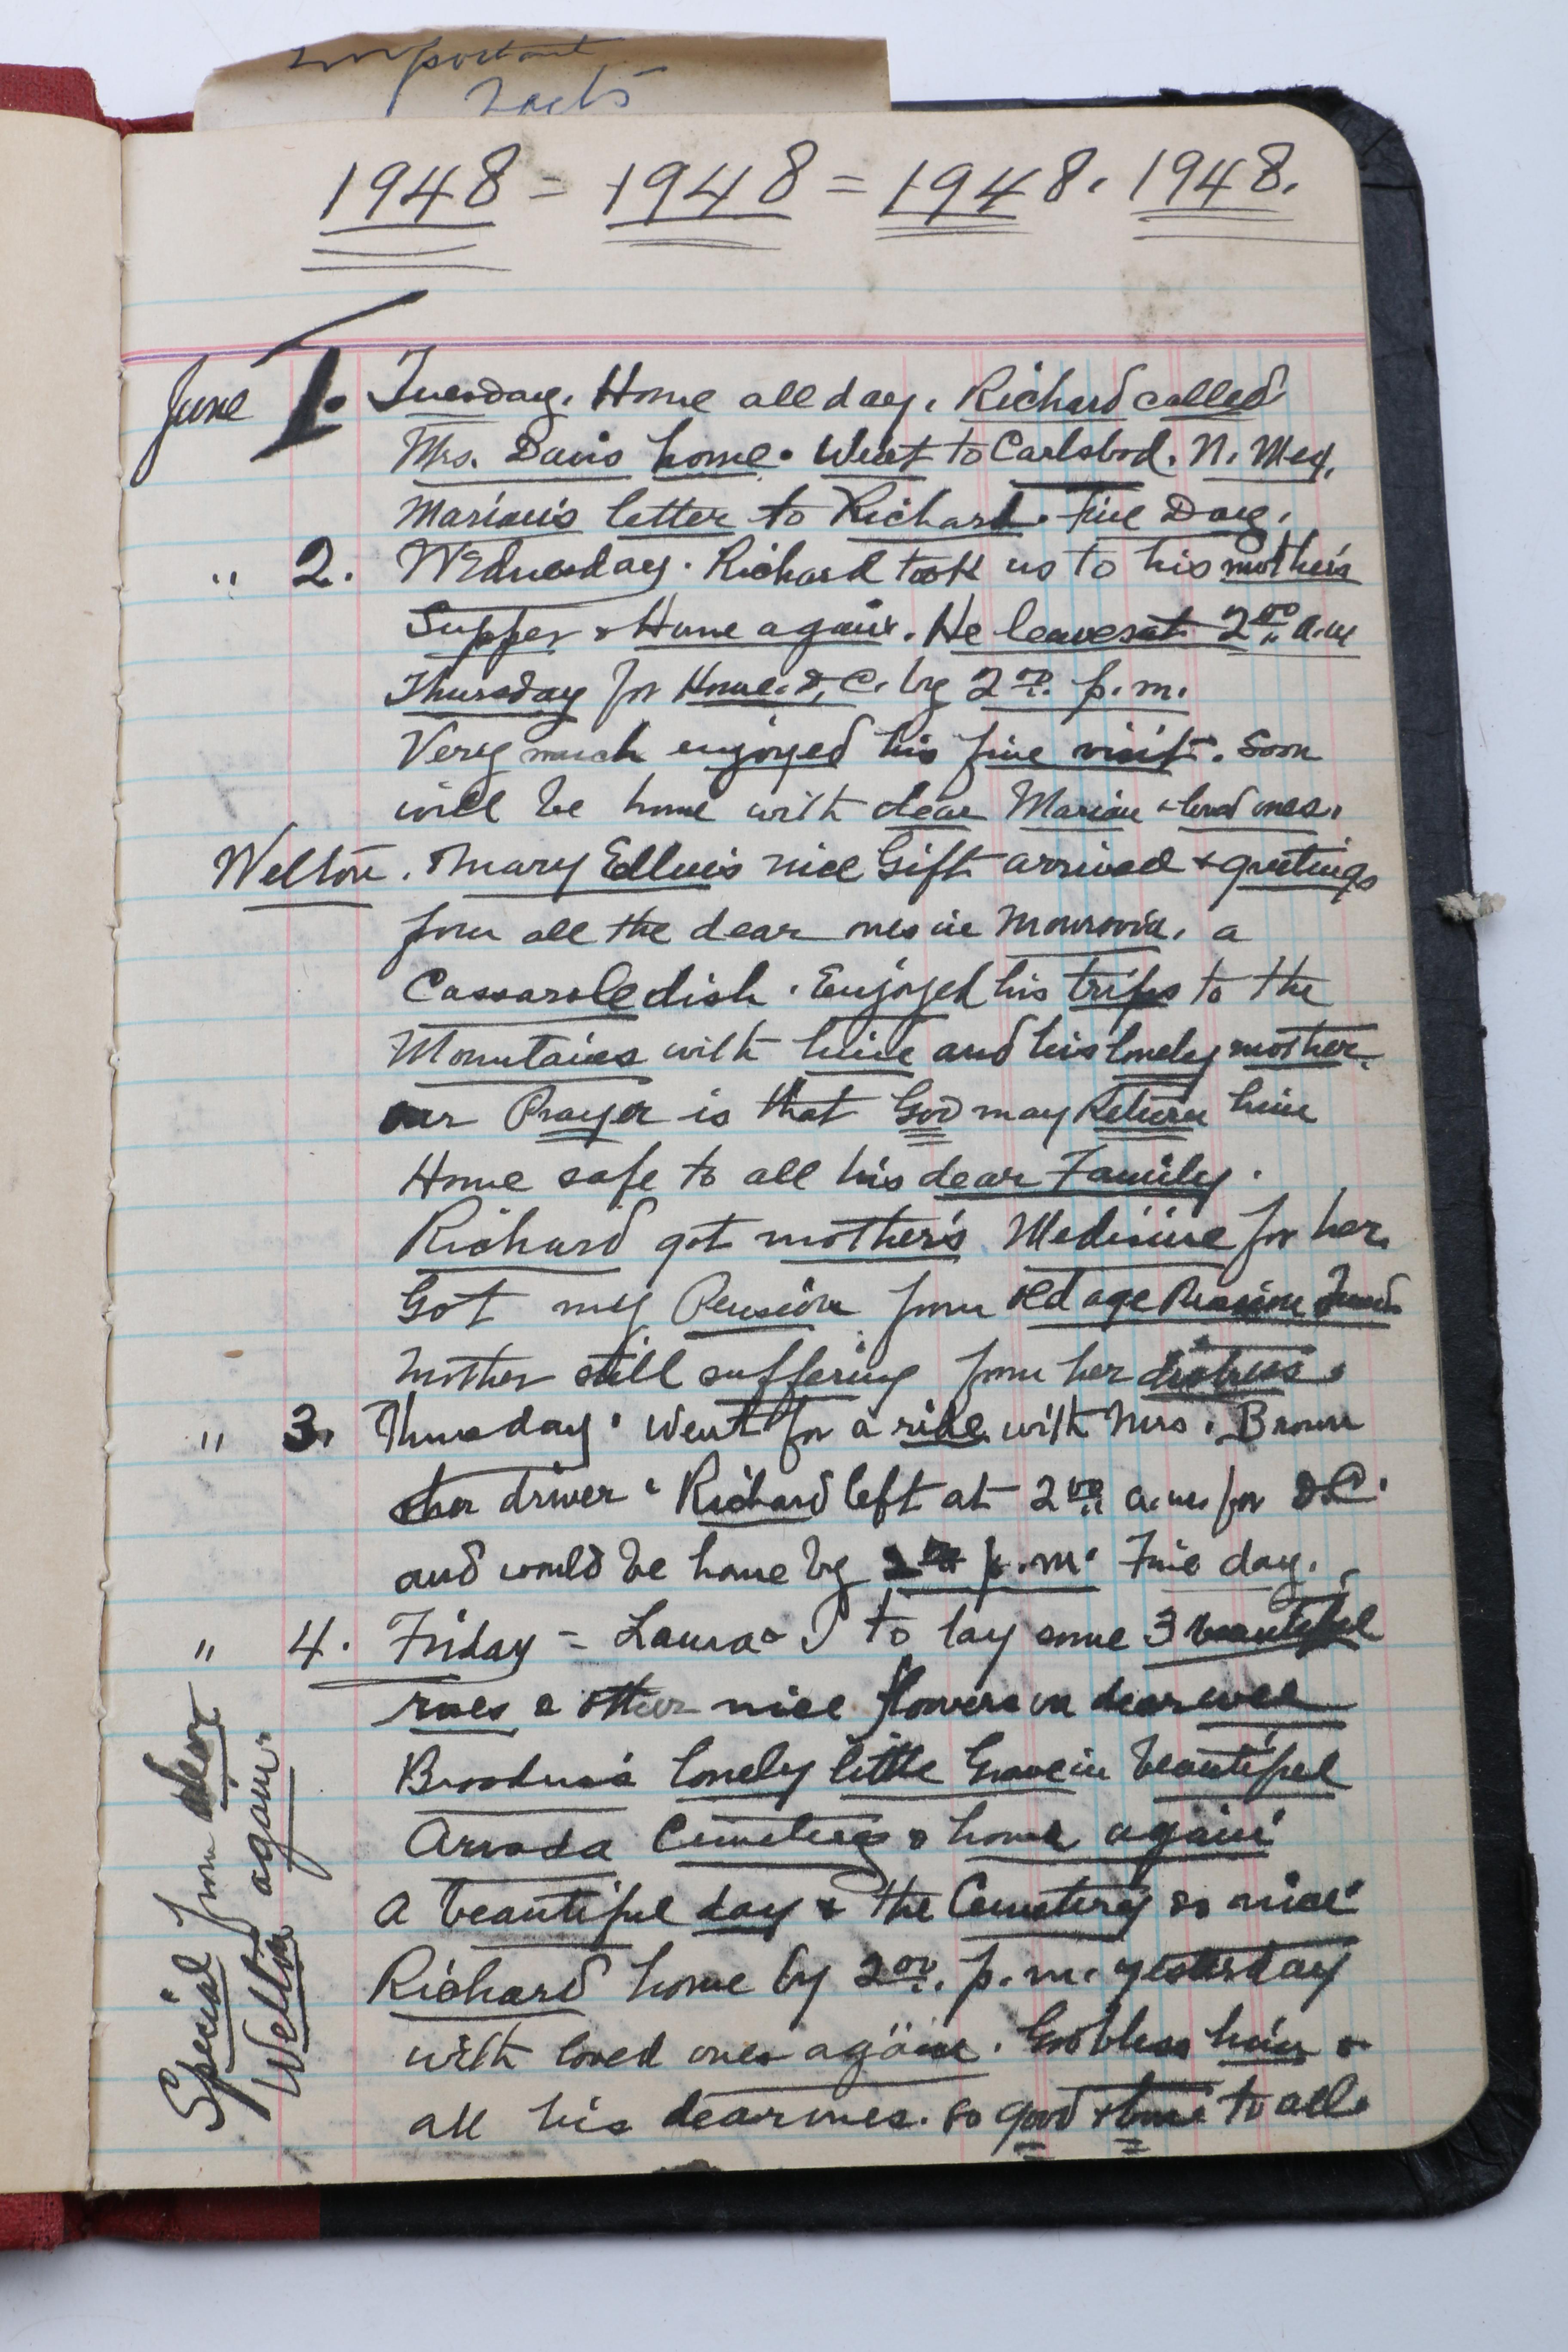 Important
Facts
1948 = 1948 = 1948. 1948.
June 1. Tuesday. Home all day. Richard called
Mrs. Davis home. Went to Carlsbad. N. Mex.
Marian's letter to Richard. Fine Day.
" 2. Wednesday. Richard took us to his mother's
Supper & Home again. He leaves at 2 00 a.m
Thursday for Home. D.C. by 2 00 p.m.
Very much enjoyed his fine visit. Soon
will be home with dear Marian & loved ones.
Welton. Mary Ellen's nice Gift arrived & greetings
from all the dear ones in Monrovia. a
Cassarole dish. Enjoyed his trips to the
Mountains with him and his lonely mother.
our Prayer is that God may Return him
Home safe to all his dear Family.
Richard got mother's Medicine for her.
Got my Pension from old age Pension Fund.
Mother still suffering from her distress.
" 3. Thursday. Went for a ride with Mrs. Brown
& her driver. Richard left at 2 00 a.m. for D.C.
and would be home by 2 00 p.m. Fine day.
" 4. Friday = Laura & I to lay some 3 beautiful
roses & other nice flowers on dear wee
lonely little Grave in beautiful
Arvada Cemetery & home again
A beautiful day & the Cemetery so nice
Richard home by 2 00. p.m. yesterday
with loved ones again. God bless him &
all his dear ones. so good & to all.
Special from dear
Welton again.